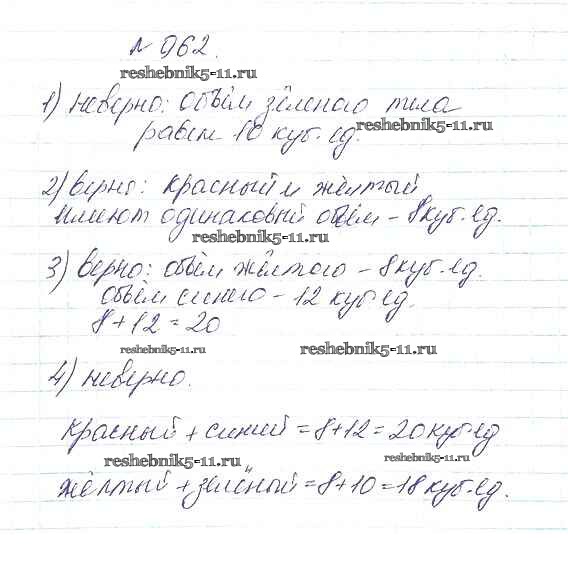 № 962.
reshebnik5-11.ru
1) неверно: объём зелёного тела
равен 10 куб. ед.
reshebnik5-11.ru
2) верно: красный и жёлтый
имеют одинаковый объём - 8 куб. ед.
reshebnik5-11.ru
3) верно: объём жёлтого - 8 куб. ед.
объём синего - 12 куб. ед.
8 + 12 = 20
reshebnik5-11.ru
reshebnik5-11.ru
4) неверно.
красный + синий = 8 + 12 = 20 куб. ед
reshebnik5-11.ru
reshebnik5-11.ru
жёлтый + зелёный = 8 + 10 = 18 куб. ед.